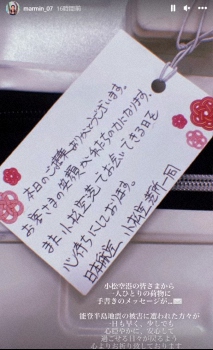 mamiin_07 16時間前
本日のご搭乗ありがとうございます。
お客さまの笑顔が私たちの力になります。
また小松空港でお会いできる日を
心待ちにしております。
日本航空 小松空港所一同
小松空港の皆さまから
一人ひとりの荷物に
手書きのメッセージが…
能登半島地震の被害に遭われた方々が
一日も早く、少しでも
心穏やかに、安心して
過ごせる日々が戻るよう
心よりお祈り致しております